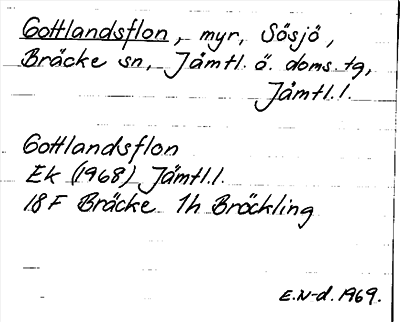 Gottlandsflon, myr, Sösjö,
Bräcke sn, Jämtl. ö. doms. tg,
Jämtl. l.
Gottlandsflon
Ek (1968) Jämtl. l.
18 F Bräcke 1h Bräckling
E. N-d. 1969.